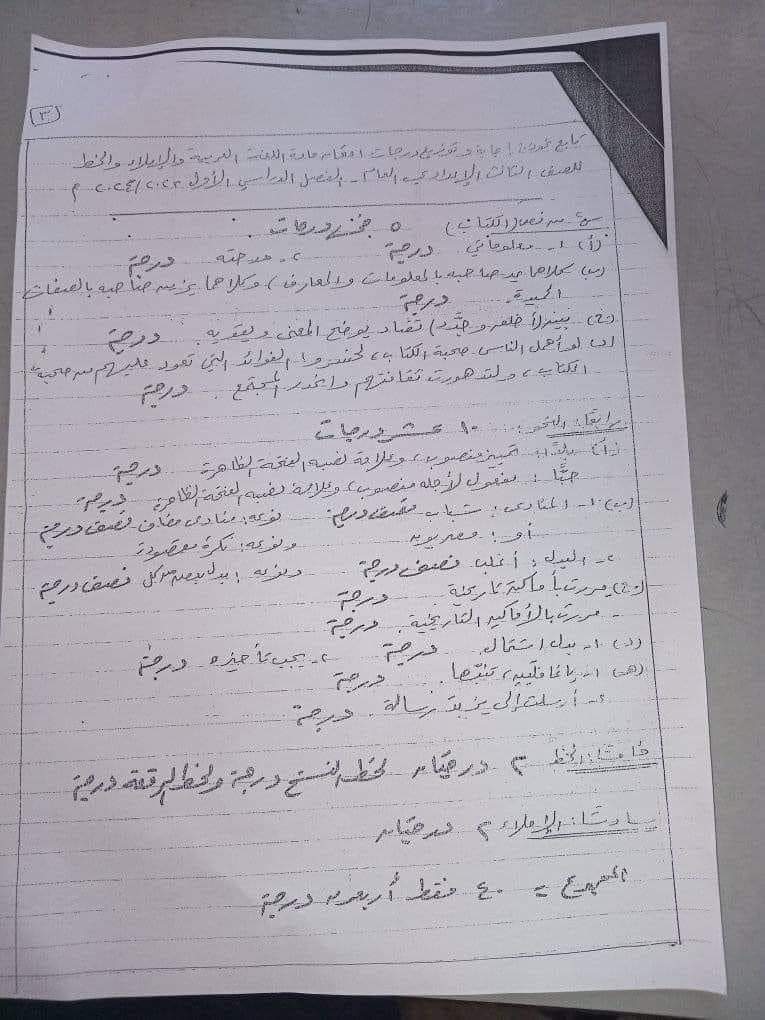 ٣
تابع نموذج إجابة وتوزيع درجات امتحان مادة اللغة العربية والإملاء والخط
للصف الثالث الإعدادي العام - الفصل الدراسي الأول ٢٠٢٣/٢٠٢٤ م
من نص (الكتاب) ٥ خمس درجات.
(أ) ١- معلوماتي. درجة ٢- مدحته درجة
(ب) كلاهما يمد صاحبه بالمعلومات والمعارف، وكلاهما يزين صاحبه بالصفات
الحميدة. درجة
(ج) بين (أخلق وجدد) تضاد يوضح المعنى ويقويه. درجة
(د) لو أهمل الناس صحبة الكتاب، لخسروا الفوائد التي تعود عليهم من صحبة
الكتاب، ولتدهورت ثقافتهم وانحدر المجتمع. درجة
رابعًا: النحو: ١٠ عشر درجات
(أ) تمييز منصوب، وعلامة نصبه الفتحة الظاهرة درجة
حبًّا: مفعول لأجله منصوب، وعلامة نصبه الفتحة الظاهرة درجة
(ب) ١- المنادى: شباب نصف درجة نوعه: منادى مضاف نصف درجة
أو: مصريون ونوعه: نكرة مقصودة
٢- البدل: أغلب نصف درجة ونوعه: بدل بعض من كل نصف درجة
(ج) - مررت بأماكن تاريخية درجة
- مررت بالأماكن التاريخية. درجة
(د) ١- بدل اشتمال. درجة ٢- يجب تأخيره درجة
(هـ) ١- يا غافلين، تنبهوا. درجة
٢- أرسلت إلى رسالة. درجة
خامسًا: الخط ٢ درجتان لخط النسخ درجة ولخط الرقعة درجة
سادسًا: الإملاء ٢ درجتان
المجموع = ٤٠ فقط أربعون درجة